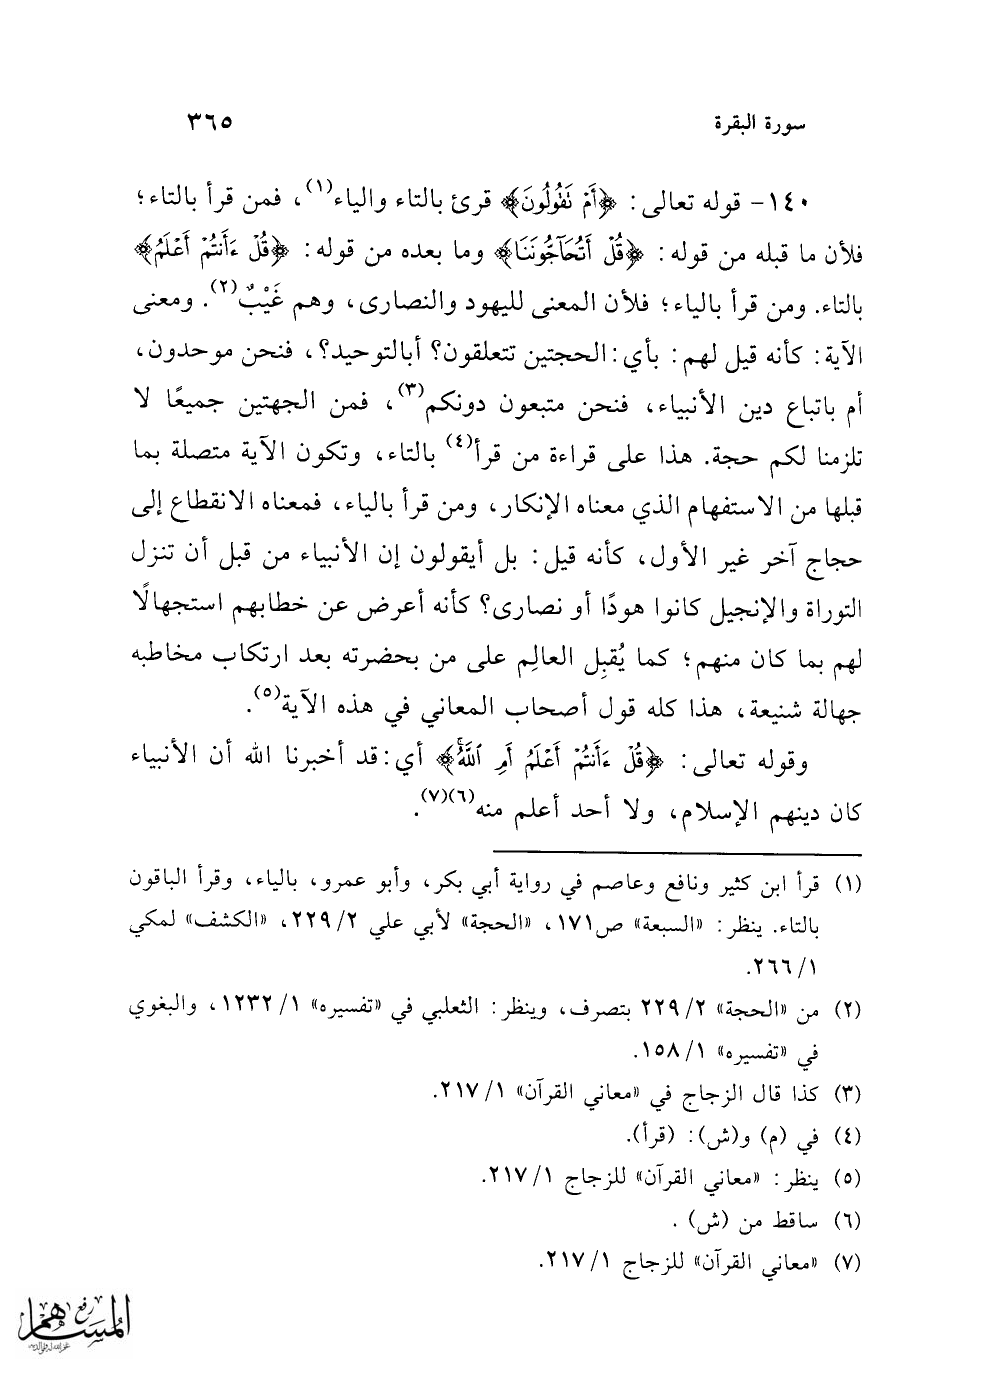 سورة البقرة ٣٦٥
١٤٠- قوله تعالى: ﴿أَمْ نَقُولُونَ﴾ قرئ بالتاء والياء(١)، فمن قرأ بالتاء؛
فلأن ما قبله من قوله: ﴿قُلْ أَتُحَآجُّونَنَا﴾ وما بعده من قوله: ﴿قُلْ ءَأَنتُمْ أَعْلَمُ﴾
بالتاء. ومن قرأ بالياء؛ فلأن المعنى لليهود والنصارى، وهم غَيْبٌ(٢). ومعنى
الآية: كأنه قيل لهم: بأي: الحجتين تتعلقون؟ أبالتوحيد؟، فنحن موحدون،
أم باتباع دين الأنبياء، فنحن متبعون دونكم(٣)، فمن الجهتين جميعًا لا
تلزمنا لكم حجة. هذا على قراءة من قرأ(٤) بالتاء، وتكون الآية متصلة بما
قبلها من الاستفهام الذي معناه الإنكار، ومن قرأ بالياء، فمعناه الانقطاع إلى
حجاج آخر غير الأول، كأنه قيل: بل أيقولون إن الأنبياء من قبل أن تنزل
التوراة والإنجيل كانوا هودًا أو نصارى؟ كأنه أعرض عن خطابهم استجهالًا
لهم بما كان منهم؛ كما يُقبِل العالِم على من بحضرته بعد ارتكاب مخاطبه
جهالة شنيعة، هذا كله قول أصحاب المعاني في هذه الآية(٥).
وقوله تعالى: ﴿قُلْ ءَأَنتُمْ أَعْلَمُ أَمِ ٱللَّهُ﴾ أي: قد أخبرنا الله أن الأنبياء
كان دينهم الإسلام، ولا أحد أعلم منه(٦)(٧).
(١) قرأ ابن كثير ونافع وعاصم في رواية أبي بكر، وأبو عمرو، بالياء، وقرأ الباقون
بالتاء. ينظر: «السبعة» ص١٧١، «الحجة» لأبي علي ٢/ ٢٢٩، «الكشف» لمكي
١/ ٢٦٦.
(٢) من «الحجة» ٢/ ٢٢٩ بتصرف، وينظر: الثعلبي في «تفسيره» ١/ ١٢٣٢، والبغوي
في «تفسيره» ١/ ١٥٨.
(٣) كذا قال الزجاج في «معاني القرآن» ١/ ٢١٧.
(٤) في (م) و(ش): (قرأ).
(٥) ينظر: «معاني القرآن» للزجاج ١/ ٢١٧.
(٦) ساقط من (ش) .
(٧) «معاني القرآن» للزجاج ١/ ٢١٧.